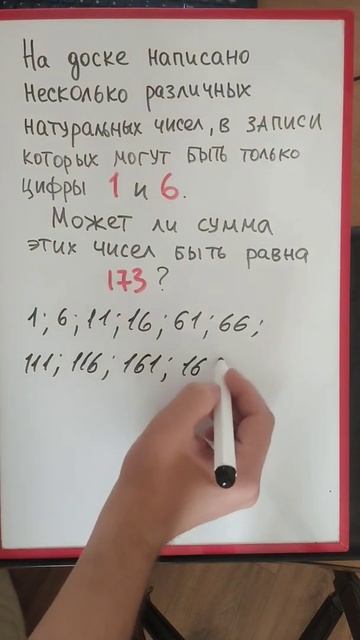 На доске написано
несколько различных
натуральных чисел, в записи
которых могут быть только
цифры 1 и 6.
Может ли сумма
этих чисел быть равна
173?
1; 6; 11; 16; 61; 66;
111; 116; 161; 16